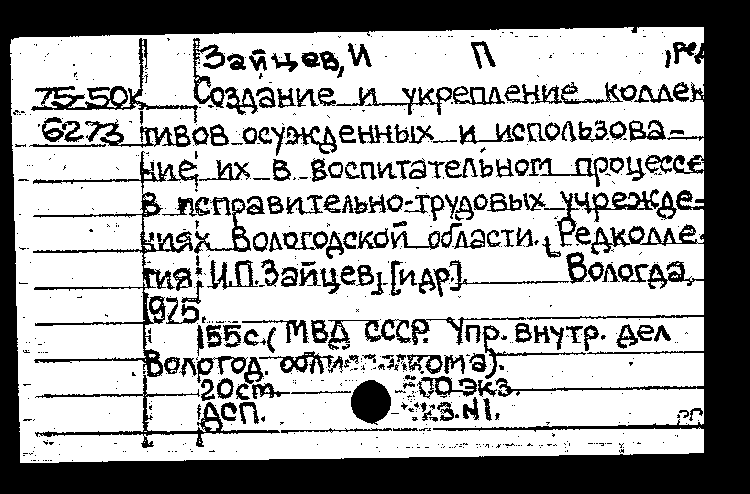 Зайцев, И П , ред
75-50к Создание и укрепление коллек
6273 тивов осужденных и использова-
ние их в воспитательном процессе
в исправительно-трудовых учрежде-
ниях Вологодской области. [Редколле-
гия: И.П.Зайцев] [и др]. Вологда,
1975.
155с. (МВД СССР. Упр. внутр. дел
Вологод. облисполкома).
20см. 500 экз.
ДСП. Экз.N1.
РП